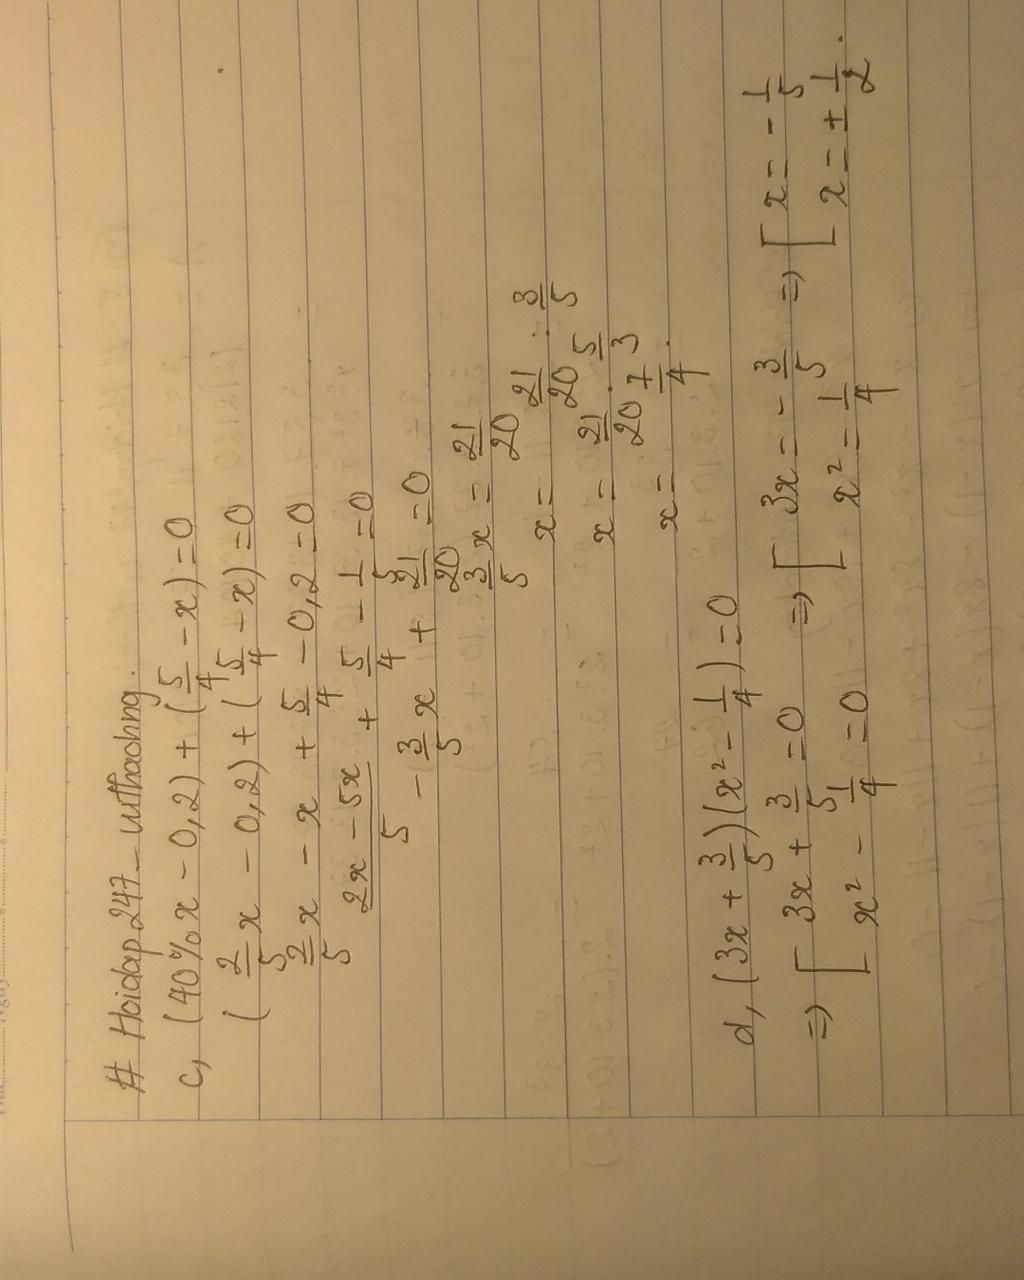 # Hoidap247_vuthaohng.
c, (40%x - 0,2) + (5/4 - x) = 0
(2/5 x - 0,2) + (5/4 - x) = 0
2/5 x - x + 5/4 - 0,2 = 0
(2x - 5x)/5 + 5/4 - 1/5 = 0
-3/5 x + 21/20 = 0
3/5 x = 21/20
x = 21/20 : 3/5
x = 21/20 . 5/3
x = 7/4.
d, (3x + 3/5)(x² - 1/4) = 0
⇒ [ 3x + 3/5 = 0 ⇒ [ 3x = -3/5 ⇒ [ x = -1/5
x² - 1/4 = 0 x² = 1/4 x = ± 1/2.